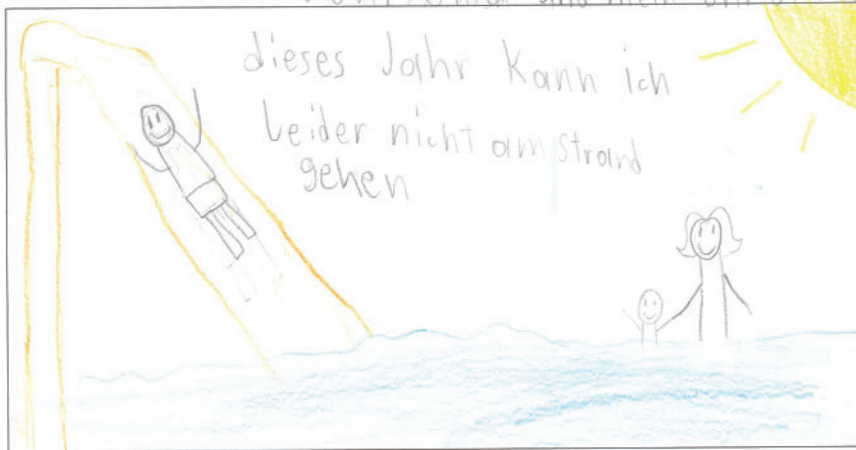 und mein
dieses Jahr kann ich
leider nicht am strand
gehen